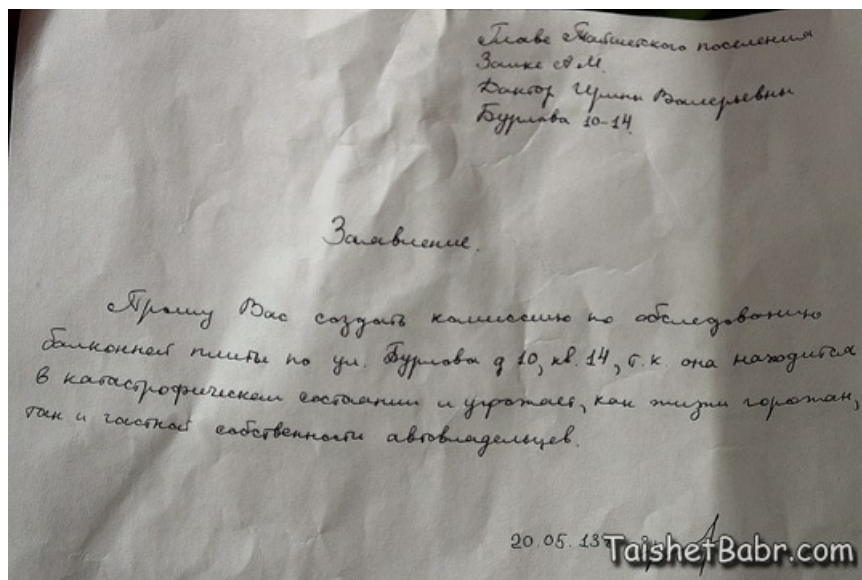 Главе Тайшетского поселения
Заике А.М.
Доктор Ирины Валерьевны
Бурлова 10-14
Заявление.
Прошу Вас создать комиссию по обследованию
балконной плиты по ул. Бурлова д 10, кв. 14, т.к. она находится
в катастрофическом состоянии и угрожает, как жизни горожан,
так и частной собственности автовладельцев.
20.05.13г
TaishetBabr.com